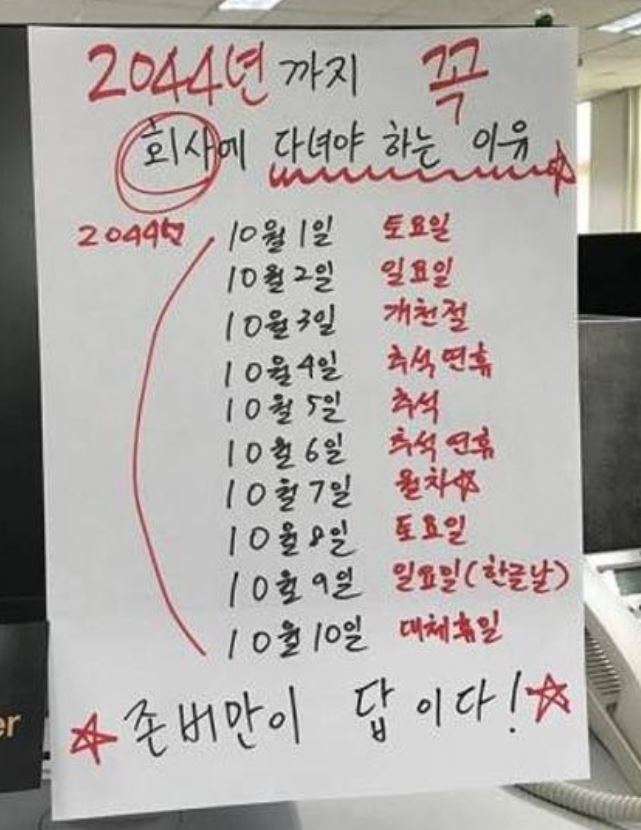 2044년 까지 꼭
회사에 다녀야 하는 이유
2044년
10월 1일 토요일
10월 2일 일요일
10월 3일 개천절
10월 4일 추석 연휴
10월 5일 추석
10월 6일 추석 연휴
10월 7일 월차
10월 8일 토요일
10월 9일 일요일(한글날)
10월 10일 대체휴일
존버만이 답이다!
er